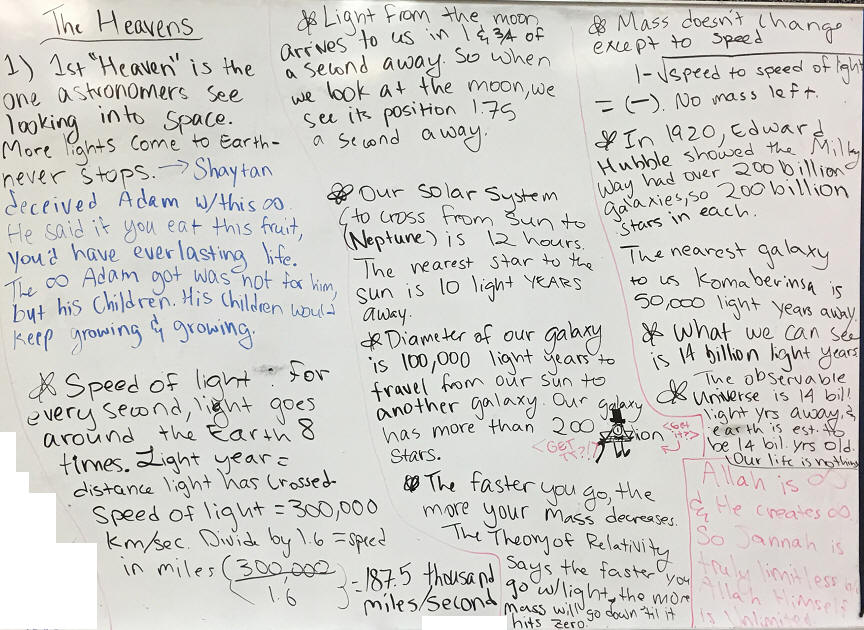 The Heavens
1) 1st "Heaven" is the
one astronomers see
looking into space.
More lights come to Earth-
never stops. → Shaytan
deceived Adam w/this ∞.
He said if you eat this fruit,
you'd have everlasting life.
The ∞ Adam got was not for him,
but his Children. His Children would
keep growing & growing.
* Speed of light: For
every second, light goes
around the Earth 8
times. Light year =
distance light has crossed.
Speed of light = 300,000
km/sec. Divide by 1.6 = speed
in miles (300,000
1.6
) = 187.5 thousand
miles/second
* Light from the moon
arrives to us in 1 & 3/4 of
a second away. So when
we look at the moon, we
see its position 1.75
a second away.
* Our Solar System
(to cross from Sun to
(Neptune) is 12 hours.
The nearest star to the
sun is 10 light YEARS
away.
* Diameter of our galaxy
is 100,000 light years to
travel from our sun to
another galaxy. Our galaxy
has more than 200 ion
Stars.
<GET IT?!?>
<GET it?>
* The faster you go, the
more your mass decreases.
The Theory of Relativity
says the faster you
go w/light, the more
mass will go down 'til it
hits zero.
* Mass doesn't change
except to speed
1-√speed to speed of light
= (-). No mass left.
* In 1920, Edward
Hubble showed the Milky
Way had over 200 billion
galaxies, so 200 billion
stars in each.
The nearest galaxy
to us Komaberinsa is
50,000 light years away.
* What we can see
is 14 billion light years
* The observable
Universe is 14 bil.
light yrs away, &
earth is est. to
be 14 bil. yrs old.
Our life is nothing
Allah is ∞
& He creates ∞.
So Jannah is
truly limitless
Allah Himself
is Unlimited.